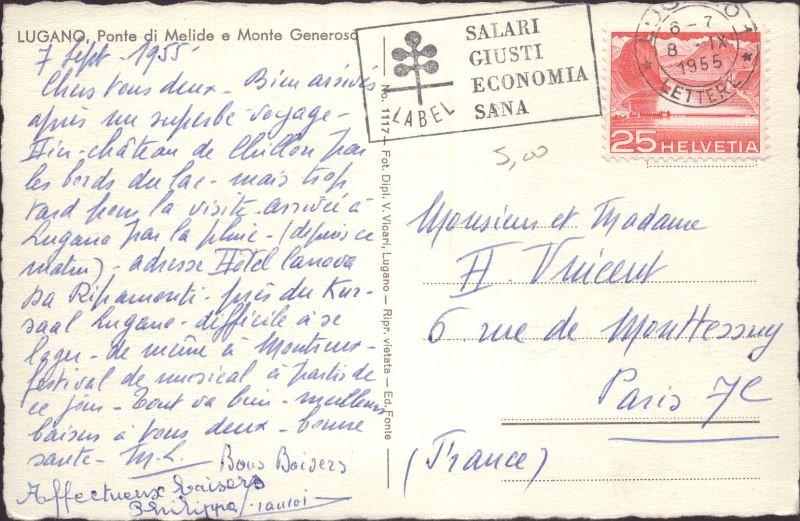 LUGANO, Ponte di Melide e Monte Generoso
7 Sept - 1955
Chers tous deux - Bien arrivés
après un superbe voyage -
Hier - château de Chillon par
les bords du lac - mais trop
tard pour la visite - arrivée à
Lugano par la pluie - (depuis ce
matin), - adresse Hôtel Canova
Ripamonti - près du Kur-
saal Lugano - difficile à se
loger - de même à Montreux -
festival de musical à partir de
ce jour - Tout va bien - meilleurs
baisers à vous deux - bonne
santé - M.L.
Bons Baisers
Affectueux baisers
Philippe
No. 1117 - Fot. Dipl. V. Vicari, Lugano - Ripr. vietata - Ed. Fonte
LABEL
SALARI
GIUSTI
ECONOMIA
SANA
6-7
8 IX
1955
LETTERE
25 HELVETIA
5,00
Monsieur et Madame
H. Vincent
6 rue de Monttessuy
Paris 7e
(France)